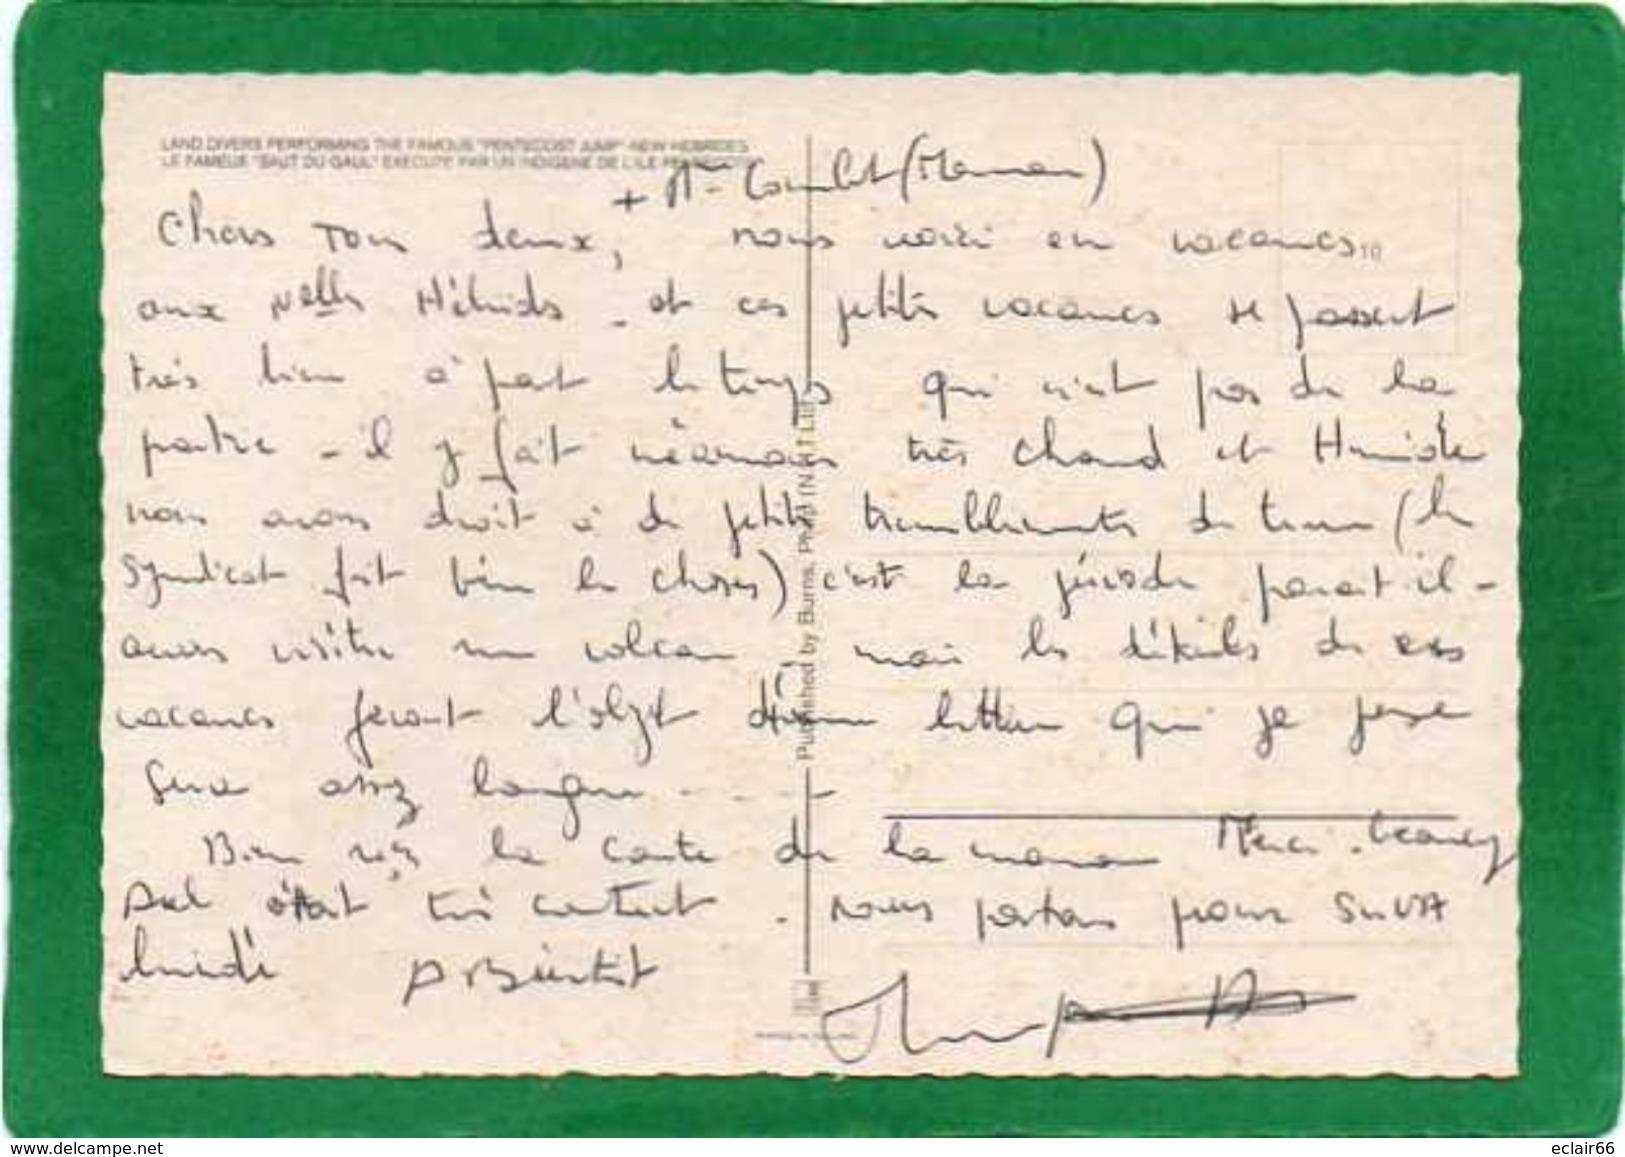 LAND DIVERS PERFORMING THE FAMOUS "PENTECOST JUMP" NEW HEBRIDES
LE FAMEUX "SAUT DU GAUL" EXECUTE PAR UN INDIGENE DE L'ILE PENTECOTE
+ Mme (Maman)
Chers Tous deux, nous voici en vacances
10
aux Nelles Hébrides - et ces petites vacances se passent
très bien à part le temps qui n'est pas de la
partie - il y fait néanmoins très chaud et Humide
nous avons droit à de petits tremblements de terre (le
Syndicat fait bien les choses) c'est la période parait-il -
avons visité un volcan, mais les détails de ces
vacances feront l'objet d'une lettre qui je pense
sera assez longue - - - -
Bien reçu la carte de la maman Merci.
Axel était très content. nous partons pour SUVA
lundi A Bientôt
Published by Burns, Philp (N.H.) Ltd
eclair66
www.delcampe.net